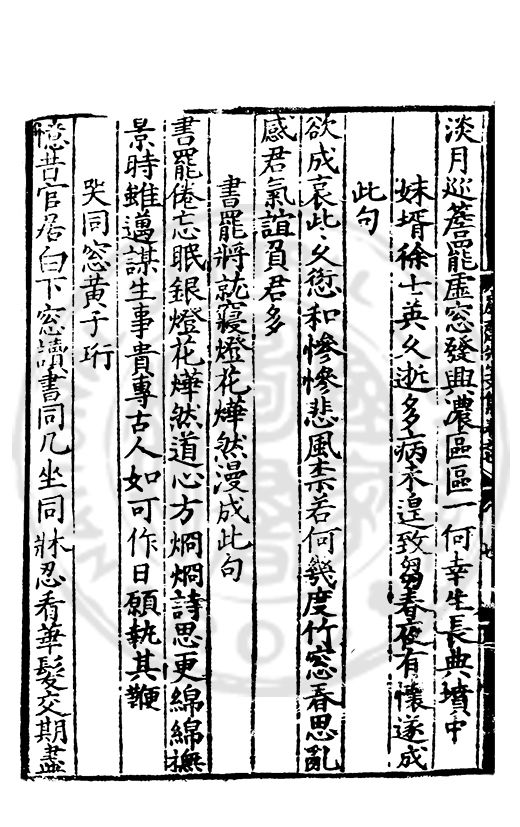 淡月巡簷罷虛窓發興濃區區一何幸生長典墳中
妹壻徐士英久逝多病未遑致芻春夜有懷遂成
此句
欲成哀此久愆和慘慘悲風柰若何幾度竹窓春思亂
感君氣誼負君多
書罷將就寢燈花燁然漫成此句
書罷倦忘眠銀燈花燁然道心方烱烱詩思更綿綿撫
景時雖邁謀生事貴專古人如可作日願執其鞭
哭同窓黃子珩
憶昔官居白下窓讀書同几坐同牀忍看華髮交期盡